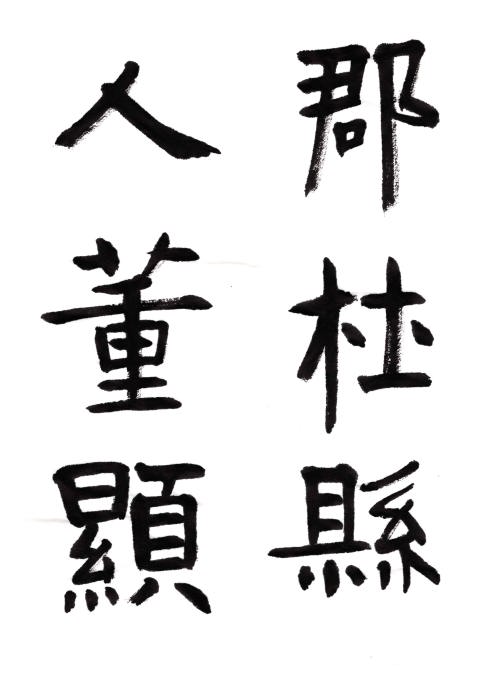 郡杜縣
人董顯